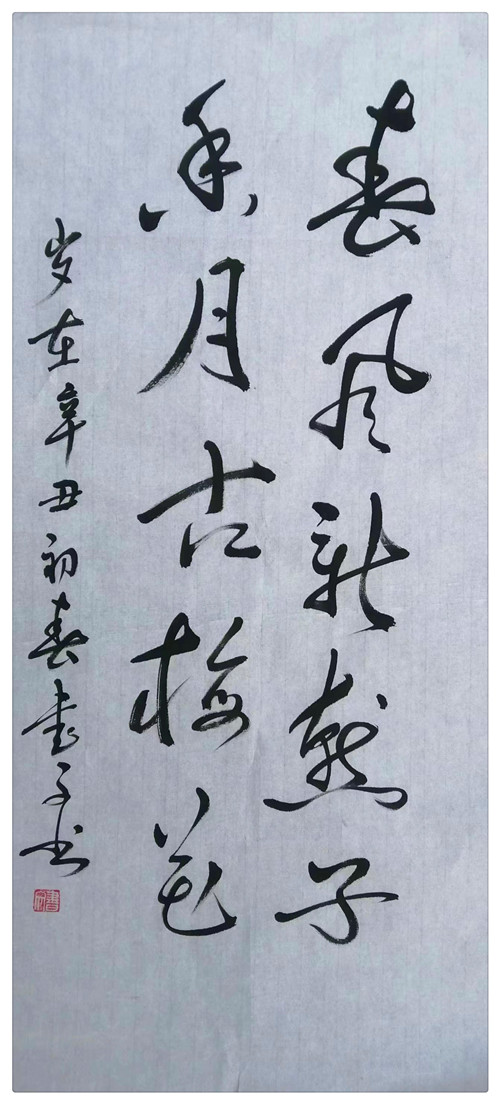 春风新燕子
香月古梅花
岁在辛丑初春书子书